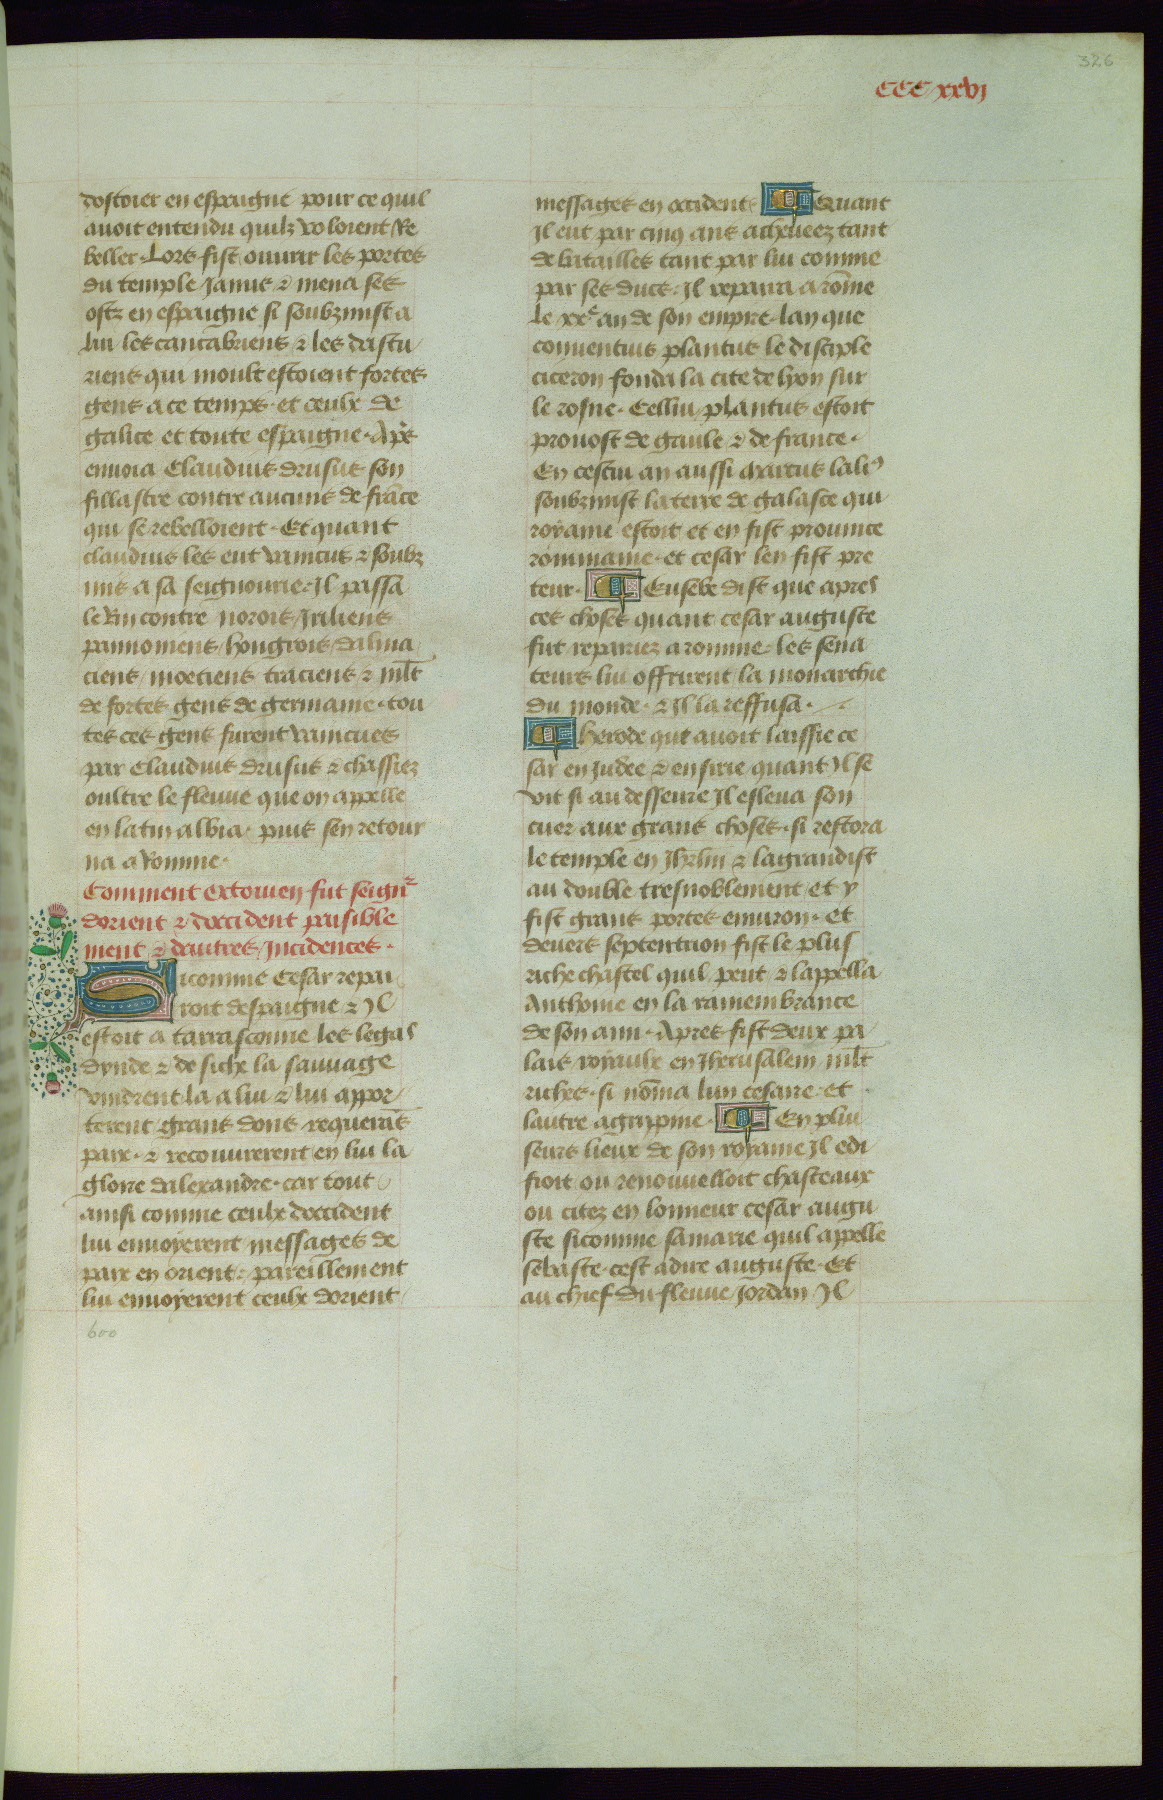 326
CCC xxvi
dostoier en espaigne pour ce quil
auoit entendu quilz voloient Re
beller. Lors fist ouurir les portes
du temple Janus & mena ses
ostz en espaigne si soubzmist a
lui les cantabriens & les dastu
riens qui moult estoient fortes
gens a ce temps. et ceulx de
galice et toute espaigne. Apres
enuoia Claudius drusus son
fillastre contre aucuns de france
qui se rebelloient. Et quant
claudius les eut vaincus & soubz
mis a sa seignourie. Il passa
le Rin contre norois / Iriliens
pannoniens / hongrois / dalma
ciens / moeciens traciens & mlt
de fortes gens de germanie. tou
tes ces gens furent vaincues
par Claudius drusus & chassiez
oultre le fleuue que on appelle
en latin albia. puis sen retour
na a Romme.
Comment octouien fut seignr
dorient & doccident paisible
ment & dautres Incidences.
Sicomme Cesar repai
roit despaigne & Il
estoit a tarrasconne les legas
dynde & de siche la sauuage
vindrent la a lui & lui appor
terent grans dons requerant
paix. & recouurerent en lui la
gloire dalexandre. car tout
ainsi comme ceulx doccident
lui enuoyerent messages de
paix en orient. pareillement
lui enuoyerent ceulx dorient
600
messages en occident. Quant
Il eut par cinq ans acheueez tant
de batailles tant par lui comme
par ses ducs. Il repaira a rōme
Le xxe an de son empire. lan que
conuentius plantus le disciple
ciceron fonda la cite de lyon sur
le rosne. Cellui plantus estoit
prouost de gaule & de france.
En cestui an aussi marcus lali9
soubzmist la terre de galasce qui
royame estoit et en fist prouince
rommaine. et cesar len fist pre
teur. Eusebe dist que apres
ces choses quant cesar auguste
fut repairiez a romme. les sena
teurs lui offrirent la monarchie
du monde. & Il la reffusa.
herode que auoit laissie ce
sar en Judee & en sirie quant Il se
vit si au desseure Il esleua son
cuer aux grans choses. si restora
le temple en Jhrlm & lagrandist
au double tresnoblement et y
fist grans portes enuiron. et
deuers septentrion fist le plus
riche chastel quil peut & lappella
Anthoine en la ramembrance
de son ami. Apres fist deux pa
lais royaulx en Jherusalem mlt
riches. si nōma lun cesaire et
lautre agrippine. En plui
seurs lieux de son royame Il edi
fioit ou renouuelloit chasteaux
ou citez en lonneur cesar augu
ste sicomme samarie quil appelle
sebaste. cest adire auguste. Et
au chief du fleuue Jordan Il